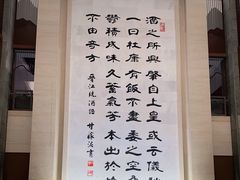 酒之所興肇自上皇或云儀
一曰杜康有飯不盡委之空桑
鬱積成味久蓄氣芳本出於
不由奇方 晋江統酒誥